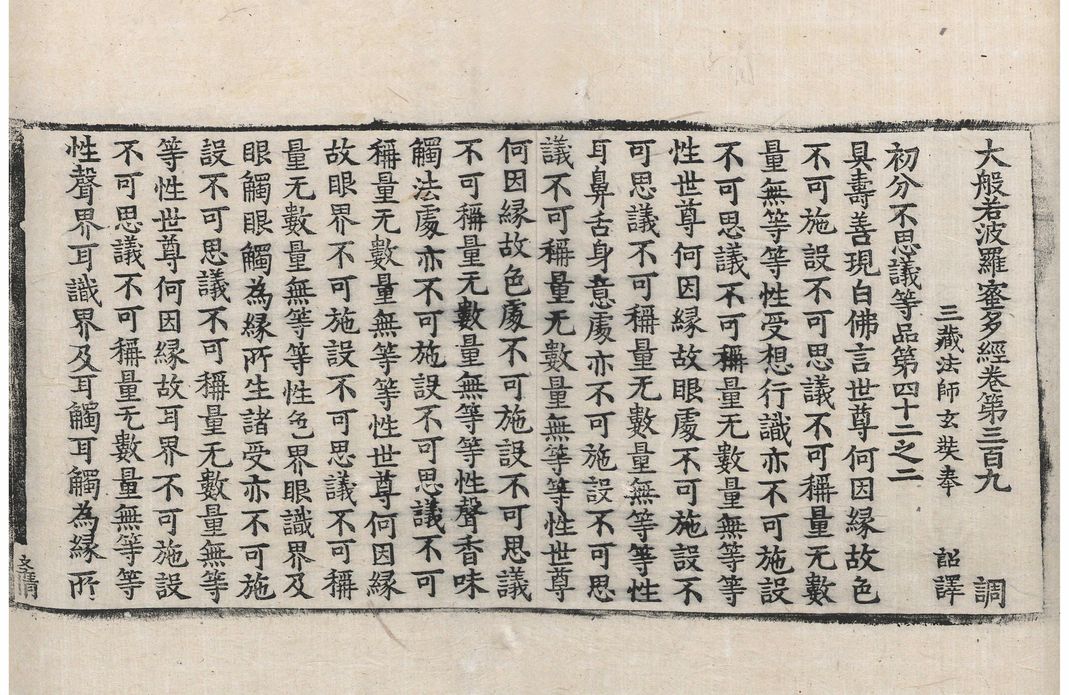 大般若波羅蜜多經卷第三百九 調
三藏法師玄奘奉 詔譯
初分不思議等品第四十二之二
具壽善現白佛言世尊何因緣故色
不可施設不可思議不可稱量无數
量無等等性受想行識亦不可施設
不可思議不可稱量无數量無等等
性世尊何因緣故眼處不可施設不
可思議不可稱量无數量無等等性
耳鼻舌身意處亦不可施設不可思
議不可稱量无數量無等等性世尊
何因緣故色處不可施設不可思議
不可稱量无數量無等等性聲香味
觸法處亦不可施設不可思議不可
稱量无數量無等等性世尊何因緣
故眼界不可施設不可思議不可稱
量无數量無等等性色界眼識界及
眼觸眼觸為緣所生諸受亦不可施
設不可思議不可稱量无數量無等
等性世尊何因緣故耳界不可施設
不可思議不可稱量无數量無等等
性聲界耳識界及耳觸耳觸為緣所